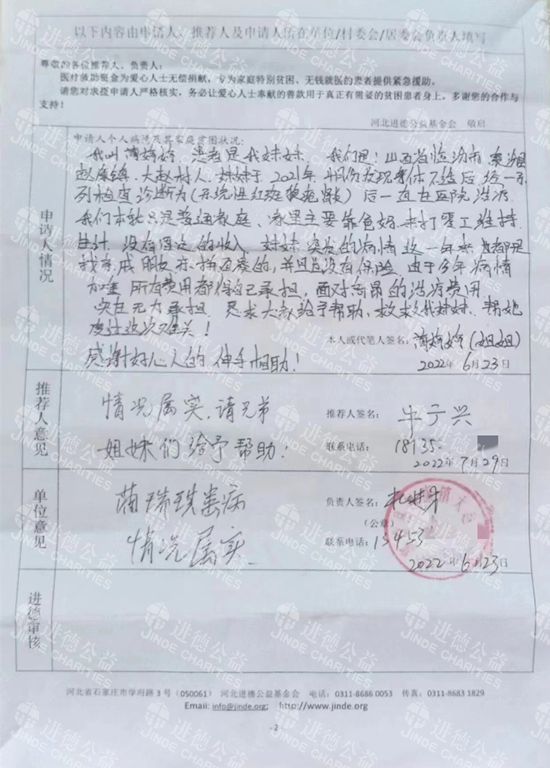 以下内容由申请人、推荐人及申请人所在单位/村委会/居委会负责人填写
尊敬的各位推荐人、负责人:
医疗救助资金为爱心人士无偿捐献,专为家庭特别贫困、无钱就医的患者提供紧急援助。
请您对求援申请人严格核实,务必让爱心人士奉献的善款用于真正有需要的贫困患者身上,多谢您的合作与
支持!
河北进德公益基金会 敬启
申请人情况
申请人个人病涉及其家庭贫困状况:
我叫 患者是我妹妹 我们是:山西省临汾市
赵康镇 大赵村人 妹妹于2021年 月份发现身体不适后 经一系
列检查诊断为(系统性红斑狼疮) 后一直在医院治疗
我们本就只是普通家庭、希望主要靠爸妈 打零工维持
生计 没有固定的收入 妹妹突发的病情 这一年来
找亲戚朋友 并且没有保险 由于今年病情
加重 所有费用都得自己承担,面对高昂的治疗费用
实在无力承担 恳求大家给予帮助、救救我妹妹、帮她
度过这次难关!
感谢好心人的伸手相助!
本人或代笔人签名: (姐姐)
2022年6月23日
推荐人意见
情况属实.请兄弟
姐妹们给予帮助!
推荐人签名: 牛亍兴
联系电话: 18135
2022年7月29日
单位意见
蔺瑞珙患病
情况属实.
负责人签名:
(公章)
联系电话: 13453
2022年6月23
进德审核
河北省石家庄市学府路3号(050061) 河北进德公益基金会 电话:0311-8686 0053 传真:0311-8683 1829
Email: info@jinde.org; http://www.jinde.org
-2
进德公益
JINDE CHARITIES